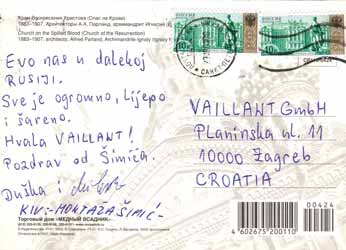 Храм Воскресения Христова (Спас на Крови)
1883-1907. Архитекторы А.А. Парланд, архимандрит Игнатий
Church on the Spilled Blood (Church of the Resurrection)
1883-1907, architects: Alfred Parland, Archimandrite Ignaty
Evo nas u dalekoj
RUSIJI.
Sve je ogromno, lijepo
i šareno.
Hvala VAILLANT!
Pozdrav od Šimića.
Duška i
KIV-MONTAŽA ŠIMIĆ
Торговый дом «МЕДНЫЙ ВСАДНИК»
РОССИЯ
РОССИЯ
VAILLANT GmbH
Planinska ul. 11
10000 Zagreb
CROATIA
00424
4 602675 200110